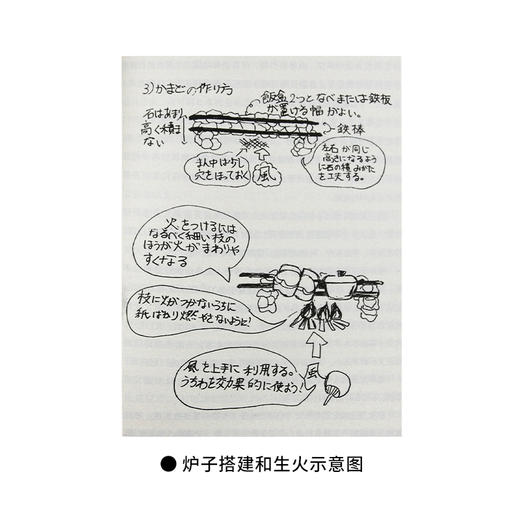 3) かまどの作り方
飯盒2つとなべまたは鉄板
が置ける幅がよい。
石はあまり
高く積ま
ない
鉄棒
まん中は少し
穴をほっておく
風
左右が同じ
高さになるよう
に石の積みかた
を工夫する。
火をつけるには
なるべく細い枝の
ほうが火がまわりや
すくなる
枝に火がつかないうちに
紙ばかり燃やさないように!
風を上手に利用する。
うちわを効果的に使おう!
風
● 炉子搭建和生火示意图